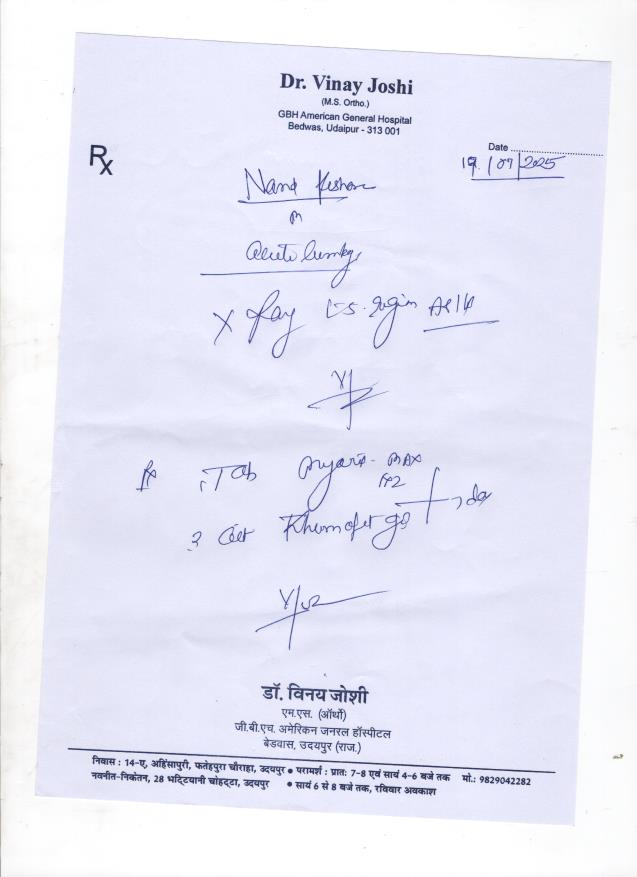 Dr. Vinay Joshi
(M.S. Ortho.)
GBH American General Hospital
Bedwas, Udaipur - 313 001
Rx
Date ..............................
19/07/2025
Nand Kishor
Acute
X Ray L-S. region AP/L
Rx 1. Tab - MAX
2 gel
डॉ. विनय जोशी
एम.एस. (ऑर्थो)
जी.बी.एच. अमेरिकन जनरल हॉस्पीटल
बेडवास, उदयपुर (राज.)
निवास : 14-ए, अहिंसापुरी, फतेहपुरा चौराहा, उदयपुर ● परामर्श : प्रातः 7-8 एवं सायं 4-6 बजे तक मो.: 9829042282
नवनीत-निकेतन, 28 भटि्टयानी चोहट्टा, उदयपुर ● सायं 6 से 8 बजे तक, रविवार अवकाश